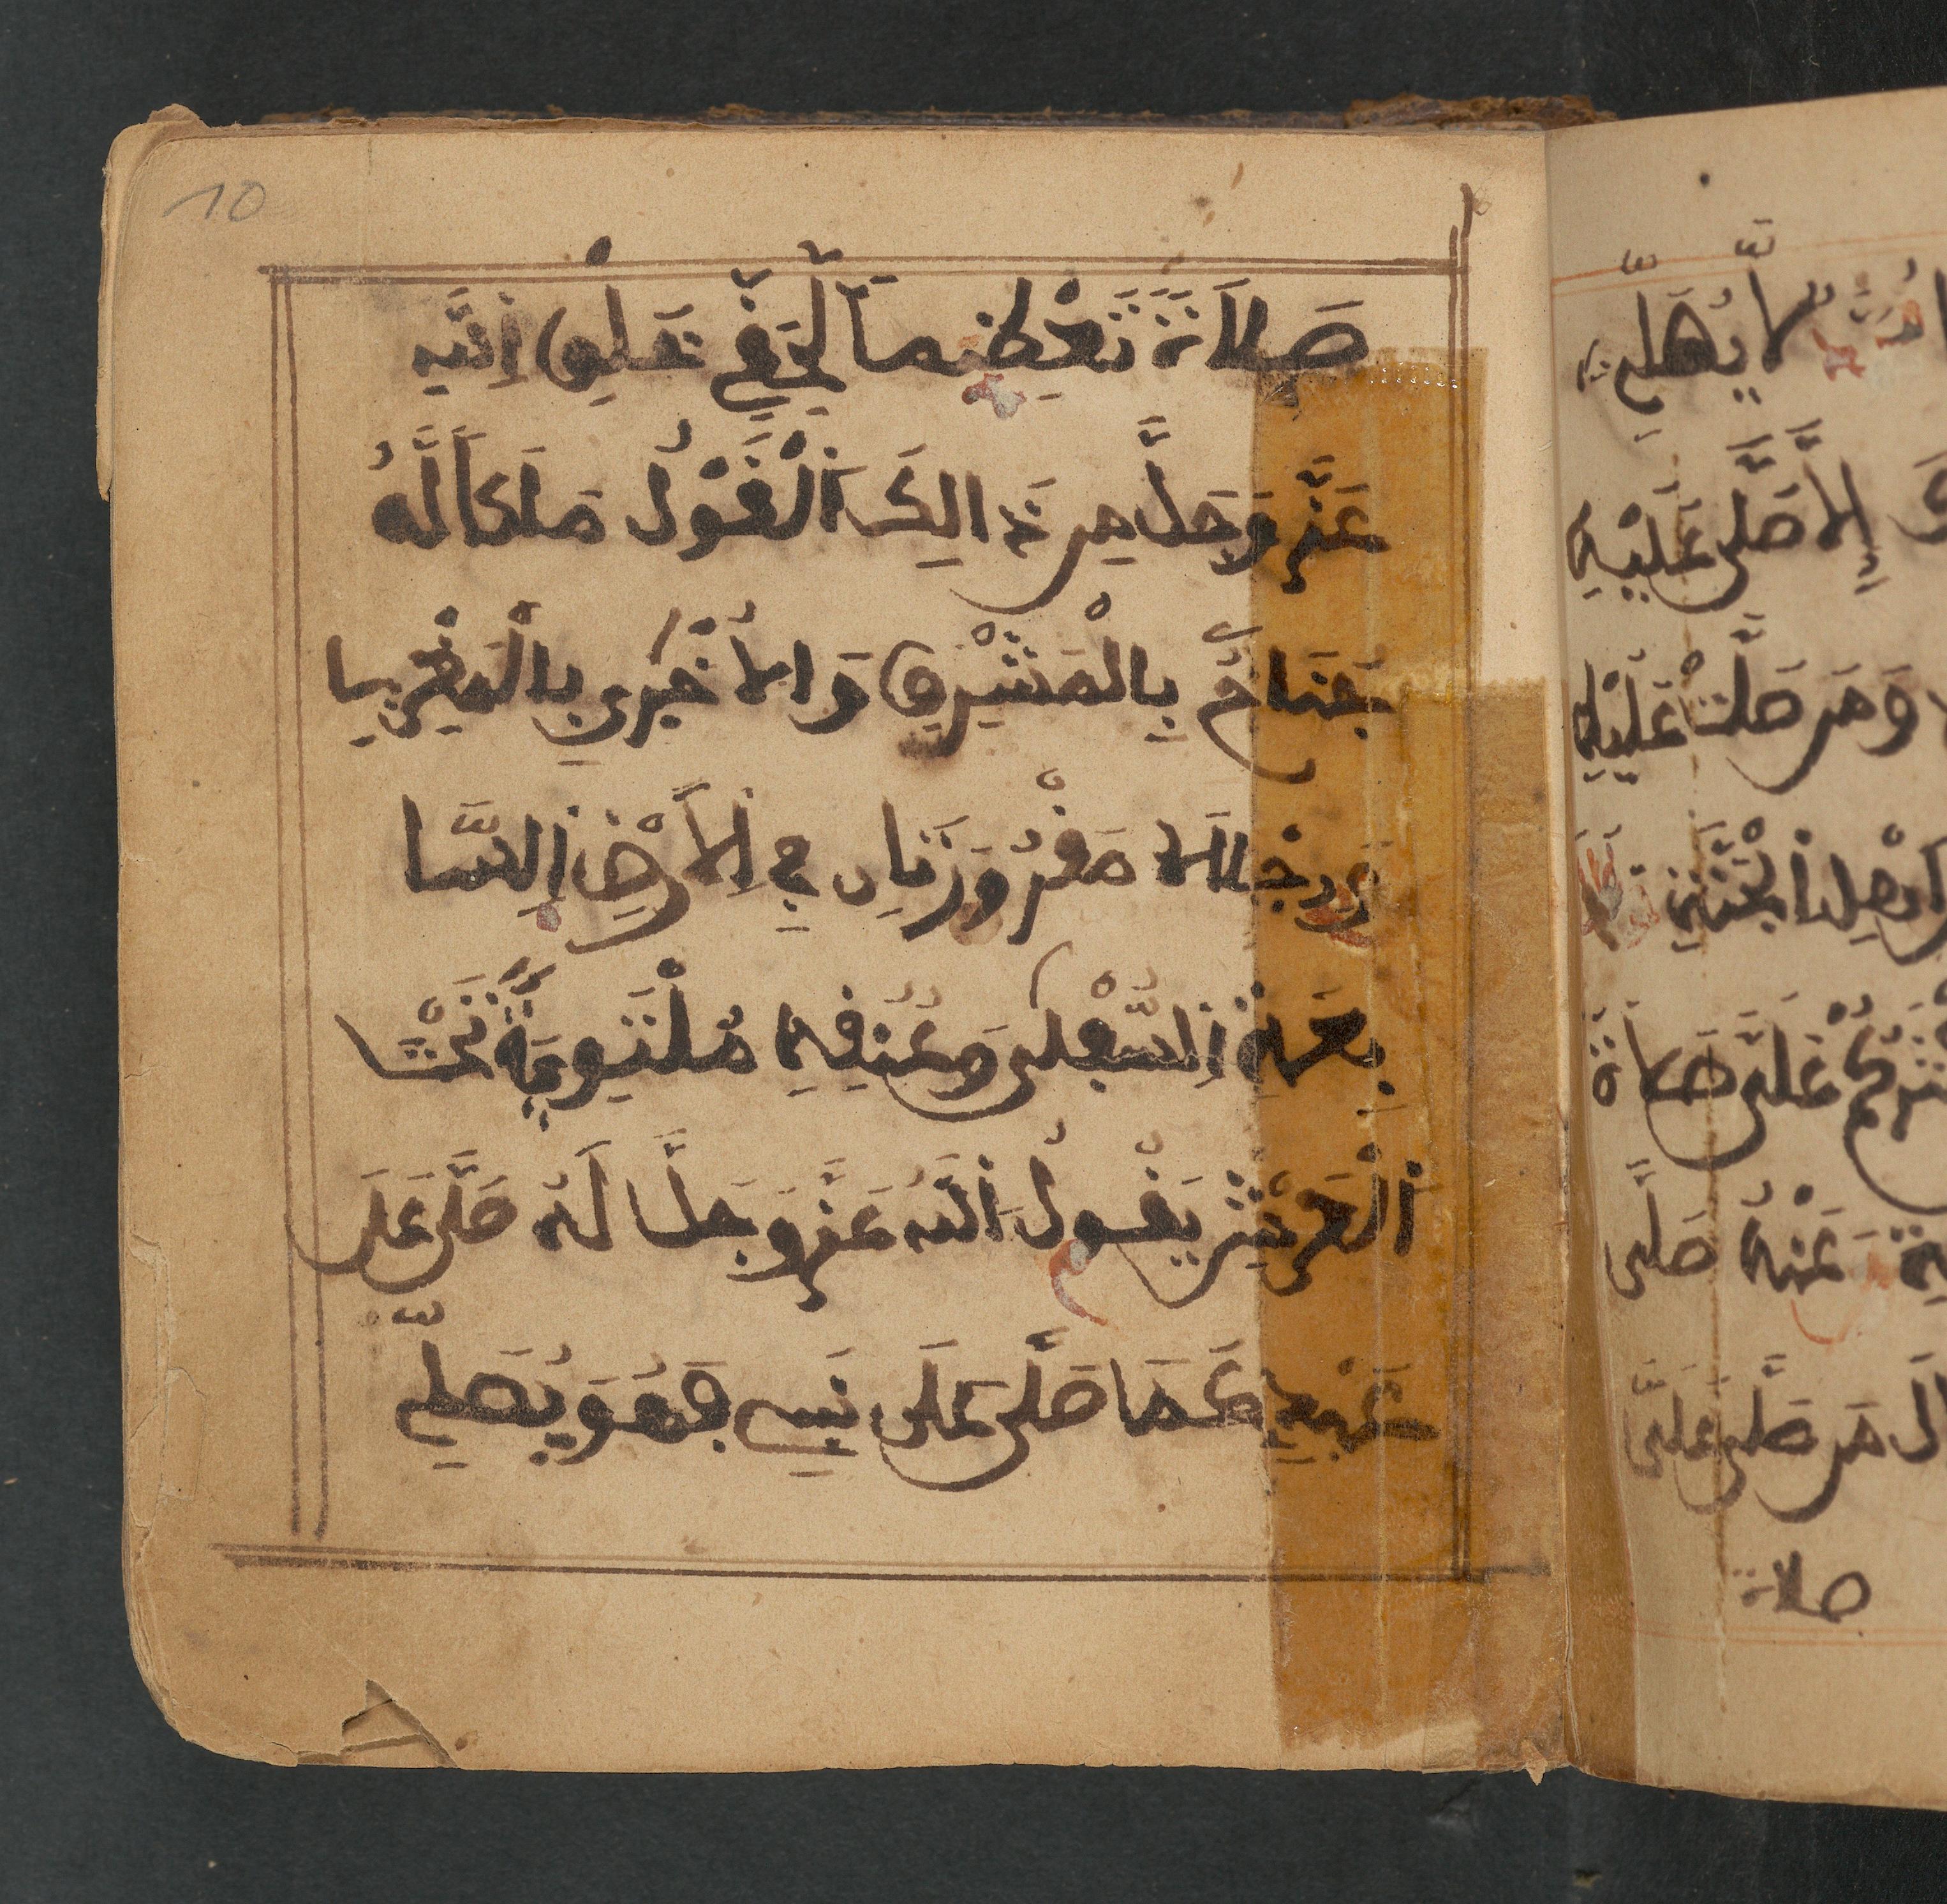 صَلَاةً تَعْظِيمًا لِّحَقِّي خَلَقَ اَللَّه
عَزَّ وَجَلَّ مِن ذَالِكَ اَلْقَوْلِ مَلَكاً لَّهُ
جَنَاحٌ بِالْمَشْرِقِ وَالْأُخْرَى بِالْمَغْرِب
وَرِجْلَاهُ مَقْرُورَتَانِ فِي اِلْأَرْضِ اِلسَّا
بِعَةِ اِلسُّفْلَى وَعُنُقُهُ مُلْتَوِيَةٌ تَحْتَ
اَلْعَرْشِ يَقُولُ اَللَّهُ عَزَّ وَجَلَّ لَهُ صَلِّ عَلَى
عَبْدِي كَمَا صَلَّى عَلَى نَبِيِي فَهُوَ يُصَلِّي
10
لَا يُصَلِّي
إِلَّا صَلَّى عَلَيْهِ
وَمَن صَلَّتْ عَلَيْهِ
الْجَنَّةِ
عَلَيَّ صَلَاةً
عَنْهُ صَلَّى
مَن صَلَّى عَلَيَّ
صلاة